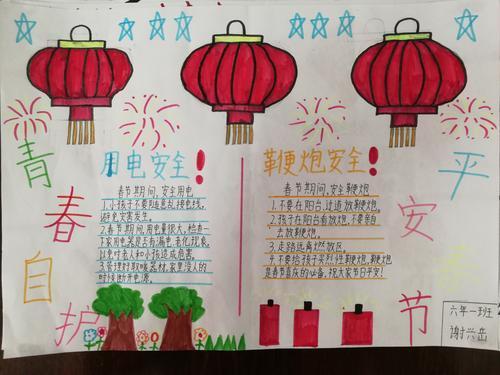 青
春
自
护
平
安
春
节
用电安全!
春节期间,安全用电
1.小孩子不要随意乱接电线,
避免灾害发生。
2.春节期间,用电量很大,检查一
下家用电器是否有漏电、老化现象,
以免对老人和小孩造成危害。
时候断开电源。
鞭炮安全!
春节期间,安全鞭炮
1.不要在阳台,过道放鞭炮。
2.孩子在阳台看放炮,不要亲自
去放鞭炮。
3.走路远离燃放区。
4.不要给孩子买烈性鞭炮,鞭炮
是春节喜庆的必备,祝大家节日平安!
六年一班
谢兴岳